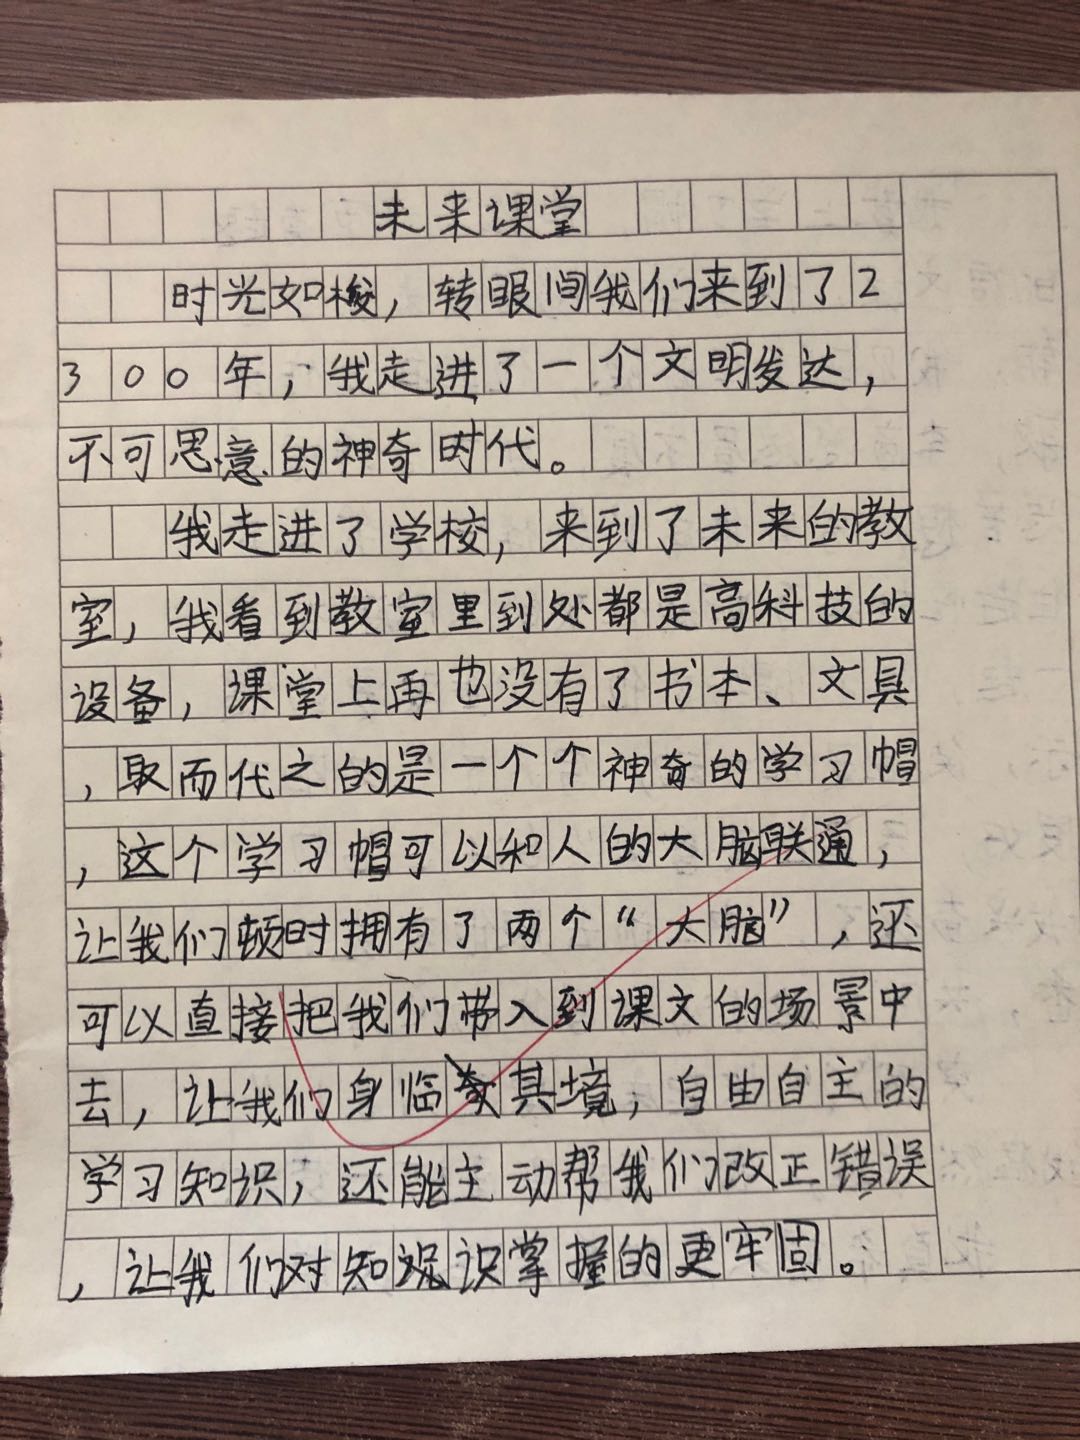 未来课堂
时光如梭，转眼间我们来到了2
300年，我走进了一个文明发达，
不可思意的神奇时代。
我走进了学校，来到了未来的教
室，我看到教室里到处都是高科技的
设备，课堂上再也没有了书本、文具
，取而代之的是一个个神奇的学习帽
，这个学习帽可以和人的大脑联通，
让我们顿时拥有了两个“大脑”，还
可以直接把我们带入到课文的场景中
去，让我们身临其境，自由自主的
学习知识，还能主动帮我们改正错误
，让我们对知识掌握的更牢固。